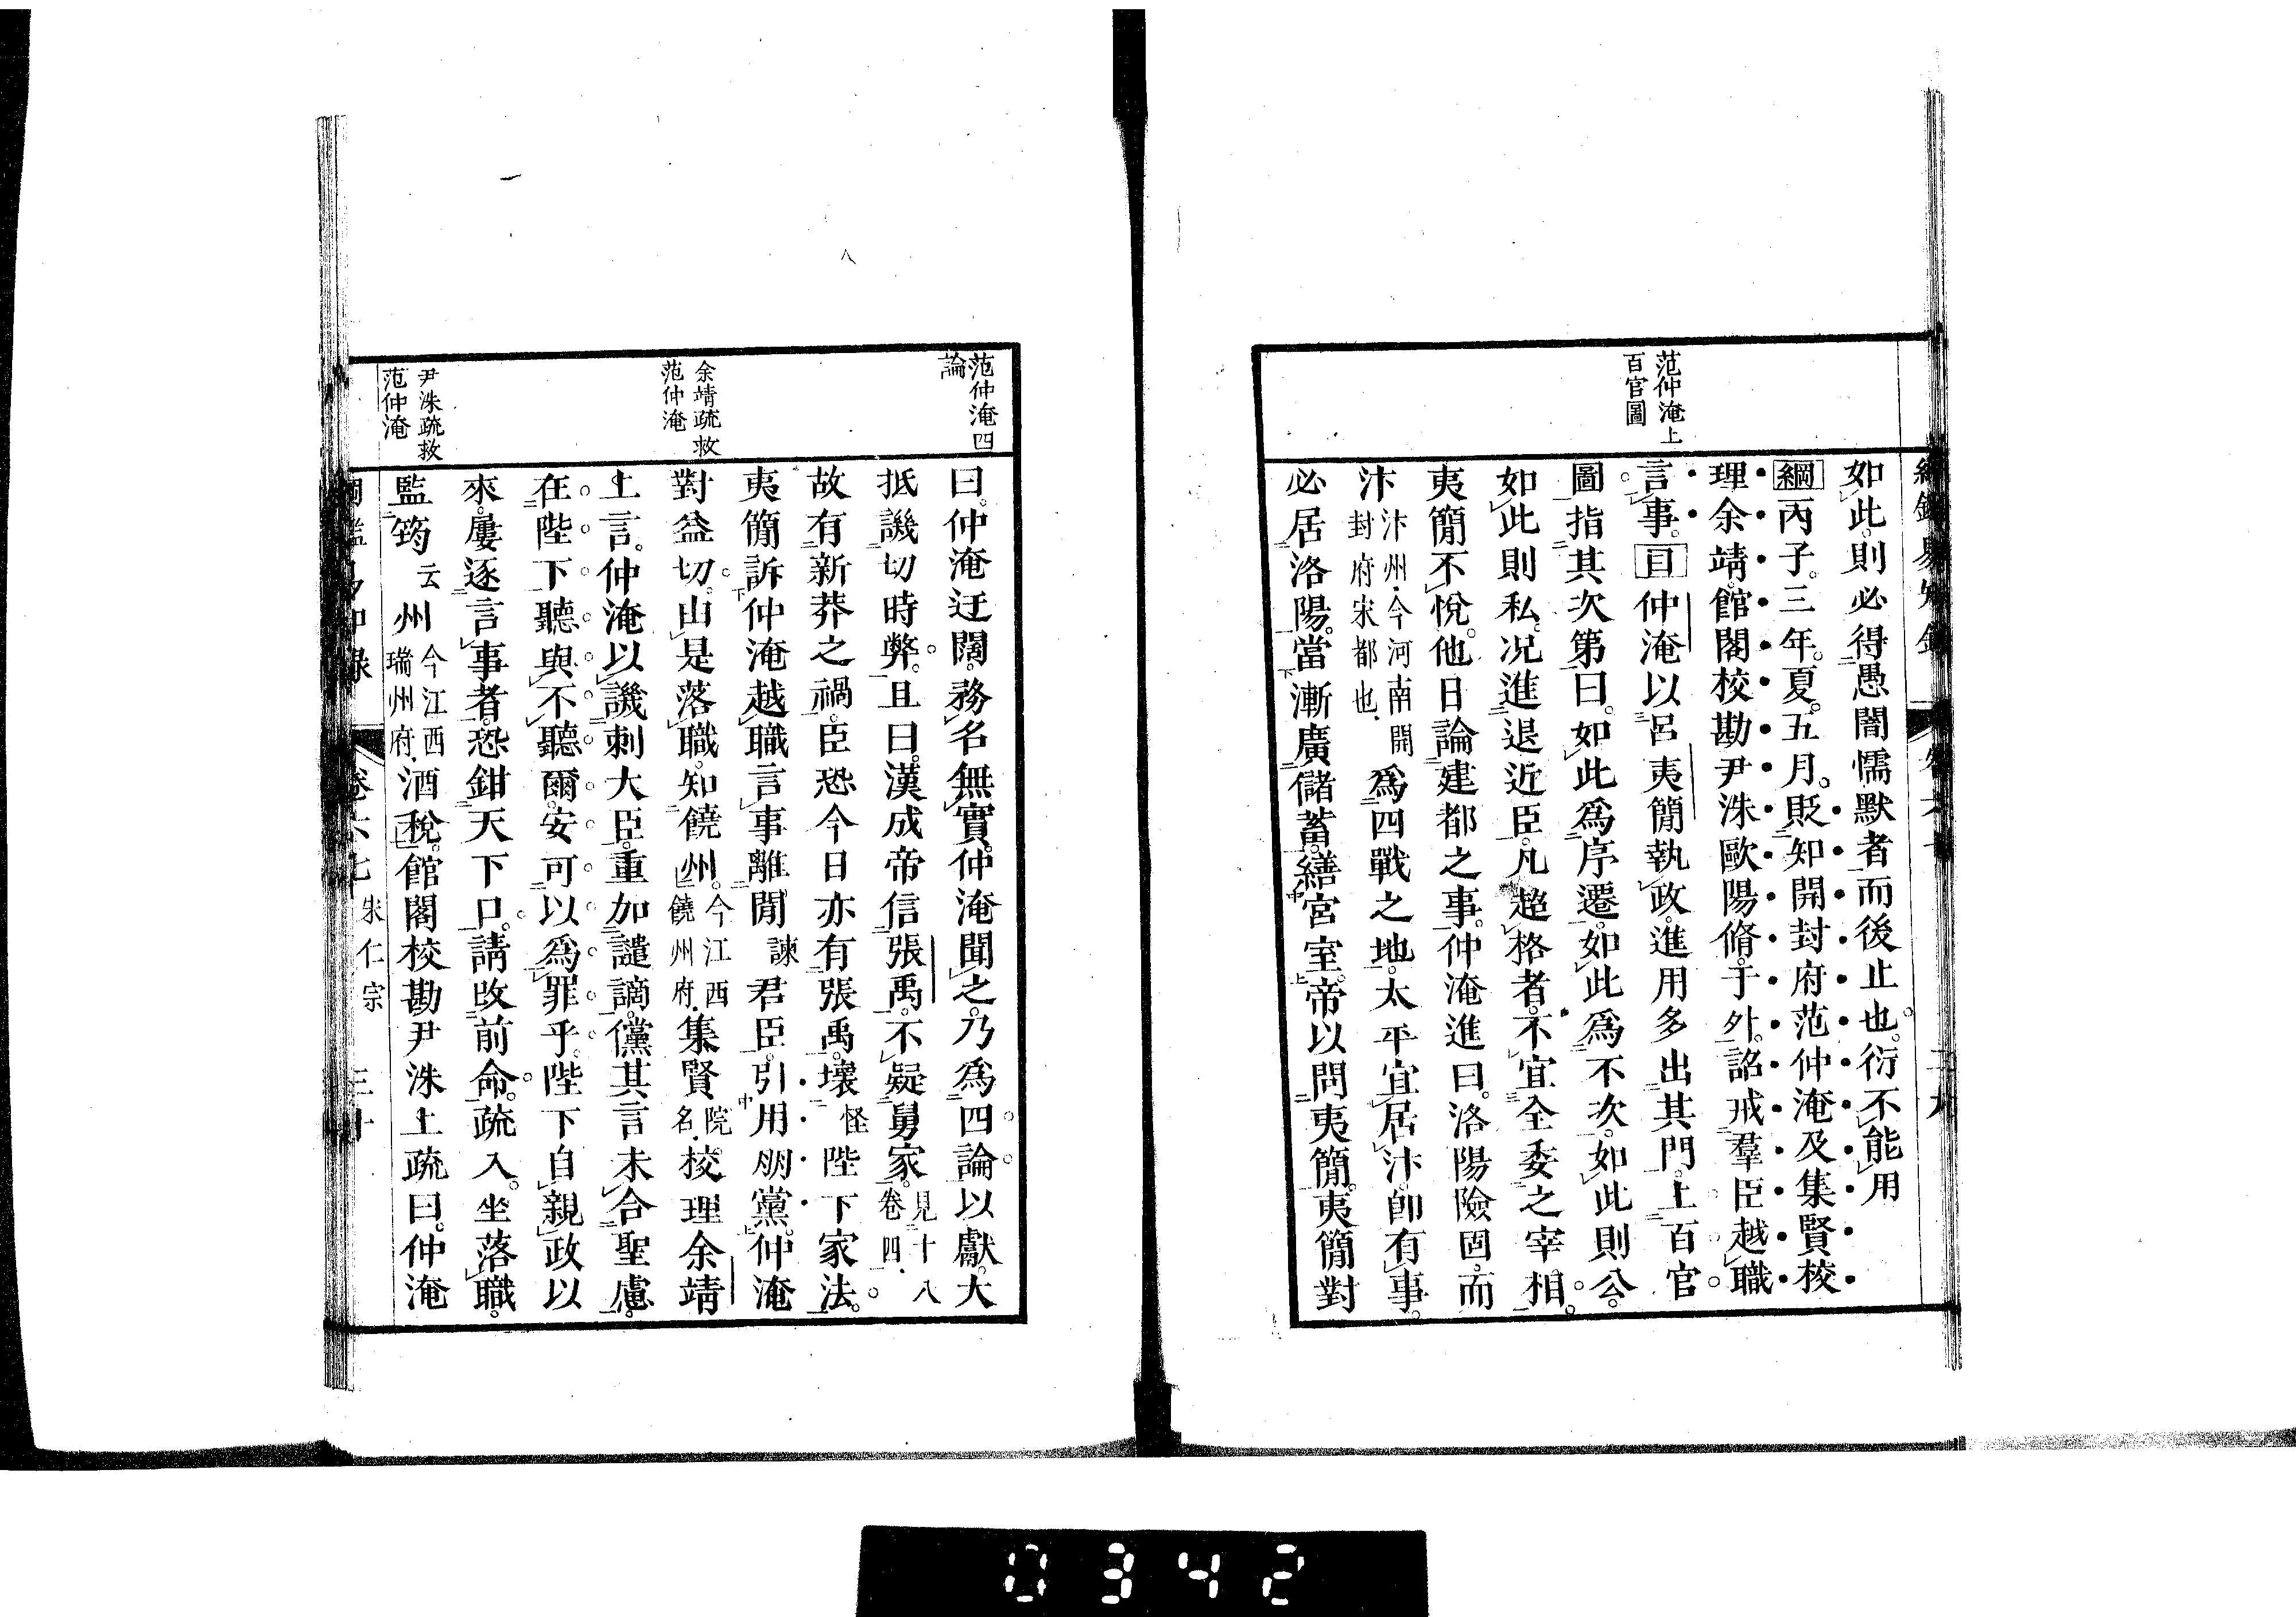 范仲淹上
百官圖
如此則必得愚闇懦默者而後止也衍不能用
綱丙子三年夏五月貶知開封府范仲淹及集賢校
理余靖館閣校勘尹洙歐陽脩于外詔戒羣臣越職
言事目仲淹以呂夷簡執政進用多出其門上百官
圖指其次第曰如此爲序遷如此爲不次如此則公
如此則私況進退近臣凡超格者不宜全委之宰相
夷簡不悅他日論建都之事仲淹進曰洛陽險固而
汴汴州今河南開封府宋都也爲四戰之地太平宜居汴卽有事
必居洛陽當漸廣儲蓄繕宮室帝以問夷簡夷簡對
范仲淹四
論
余靖疏救
范仲淹
尹洙疏救
范仲淹
曰仲淹迂闊務名無實仲淹聞之乃爲四論以獻大
抵譏切時弊且曰漢成帝信張禹不疑舅家見十八卷四
故有新莽之禍臣恐今日亦有張禹壞怪陛下家法
夷簡訴仲淹越職言事離間諫君臣引用朋黨仲淹
對益切由是落職知饒州今江西饒州府集賢院名校理余靖
上言仲淹以譏刺大臣重加譴謫儻其言未合聖慮
在陛下聽與不聽爾安可以爲罪乎陛下自親政以
來屢逐言事者恐鉗天下口請改前命疏入坐落職
監筠云州今江西瑞州府酒稅館閣校勘尹洙上疏曰仲淹
卷六七 宋仁宗 三十
0342